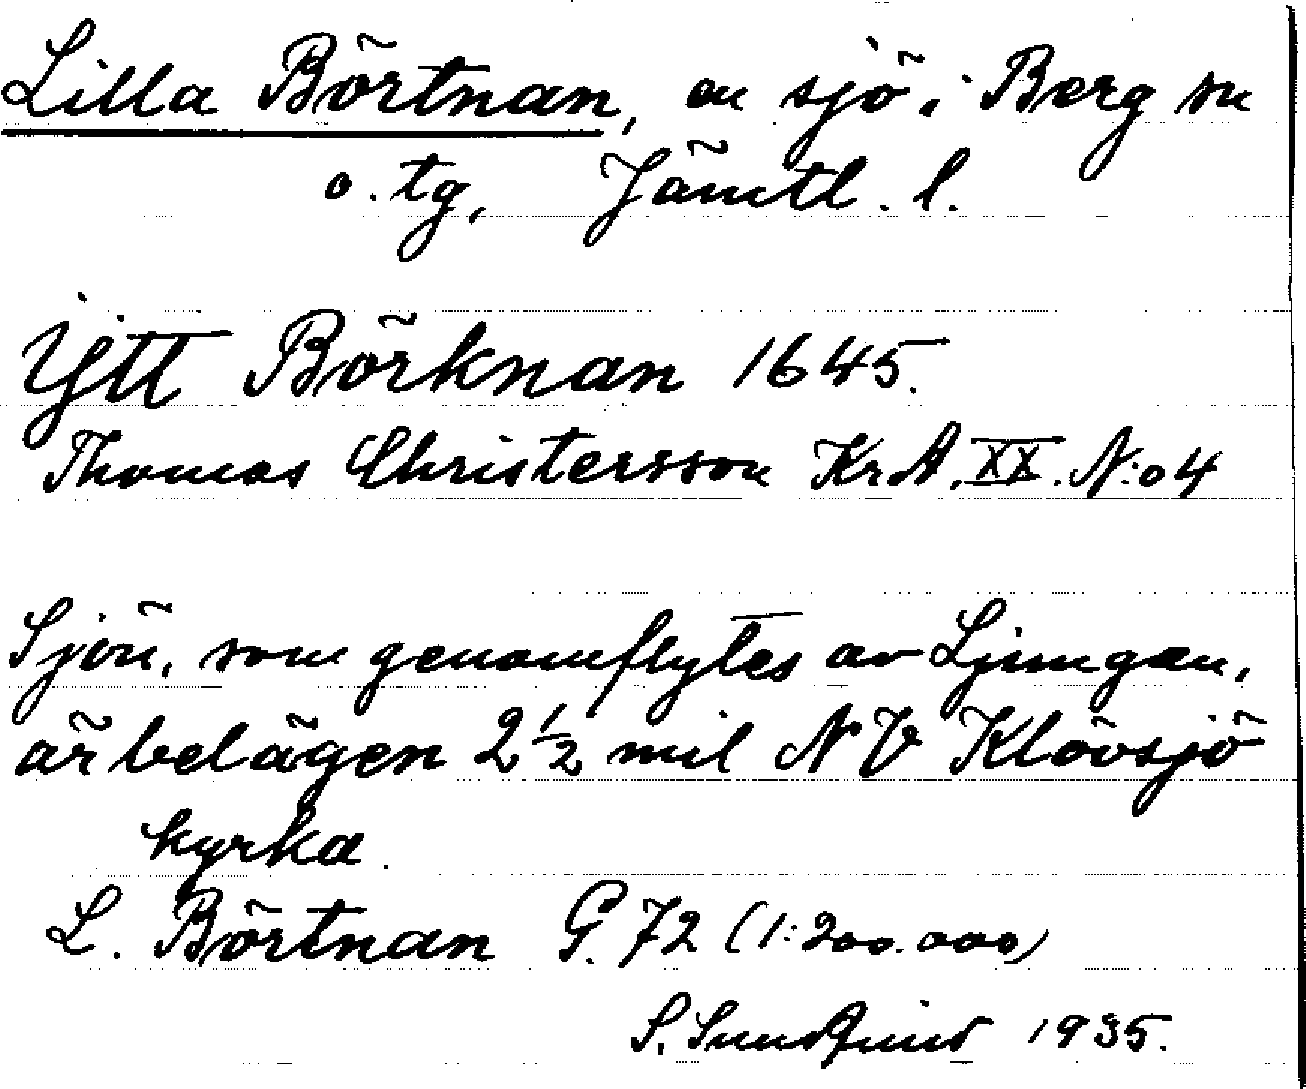 Lilla Börtnan, en sjö i Berg sn
o. tg, Jämtl. l.
Ytt Börknan 1645.
Thomas Christersson KrA. XX. N:o 4
Sjön, som genomflytes av Ljungan,
är belägen 2 1/2 mil NV Klövsjö
kyrka.
L. Börtnan G. 72 (1:200.000)
S. Sundquist 1935.